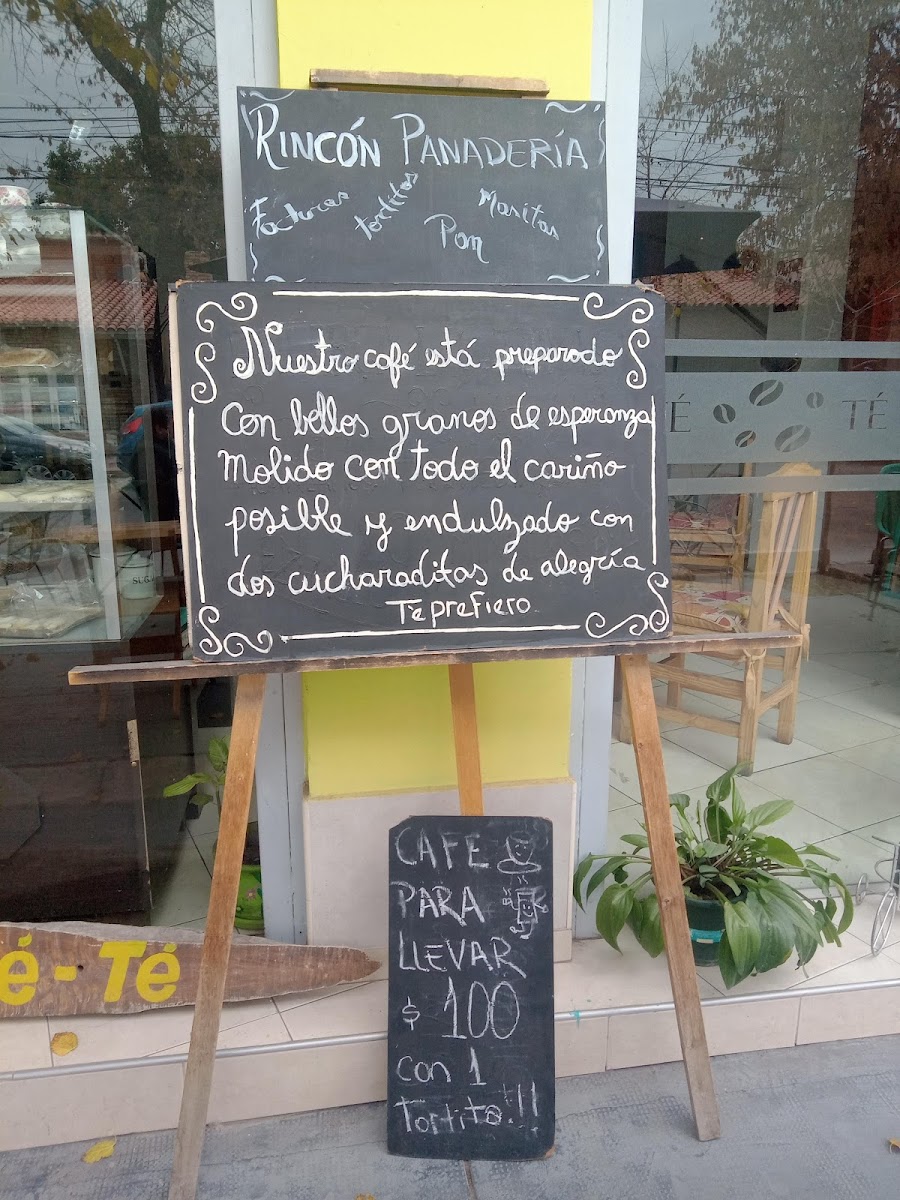 RINCÓN PANADERÍA
Facturas tortitas Pan Masitas
Nuestro café está preparado
con bellos granos de esperanza
molido con todo el cariño
posible y endulzado con
dos cucharaditas de alegría
Té prefiero
É TÉ
é-Té
CAFE
PARA
LLEVAR
$ 100
con 1
Tortita!!!